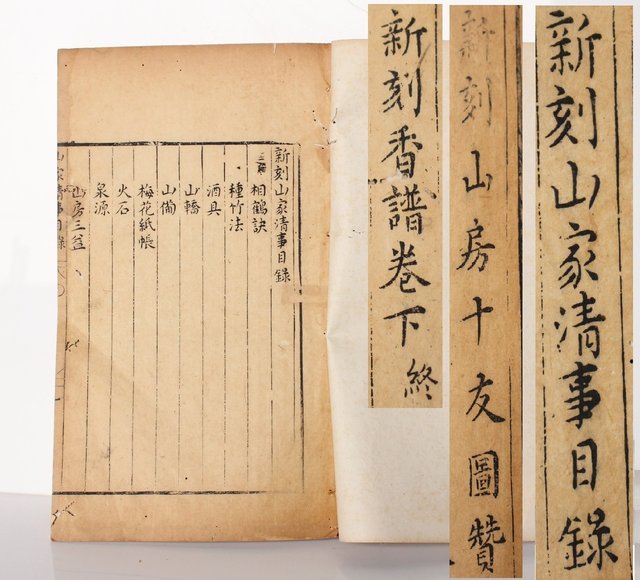 新刻山家清事目錄
相鶴訣
種竹法
酒具
山轎
山備
梅花紙帳
火石
泉源
山房三益
山家清事目錄
新刻香譜卷下 終
新刻山房十友圖贊
新刻山家清事目錄